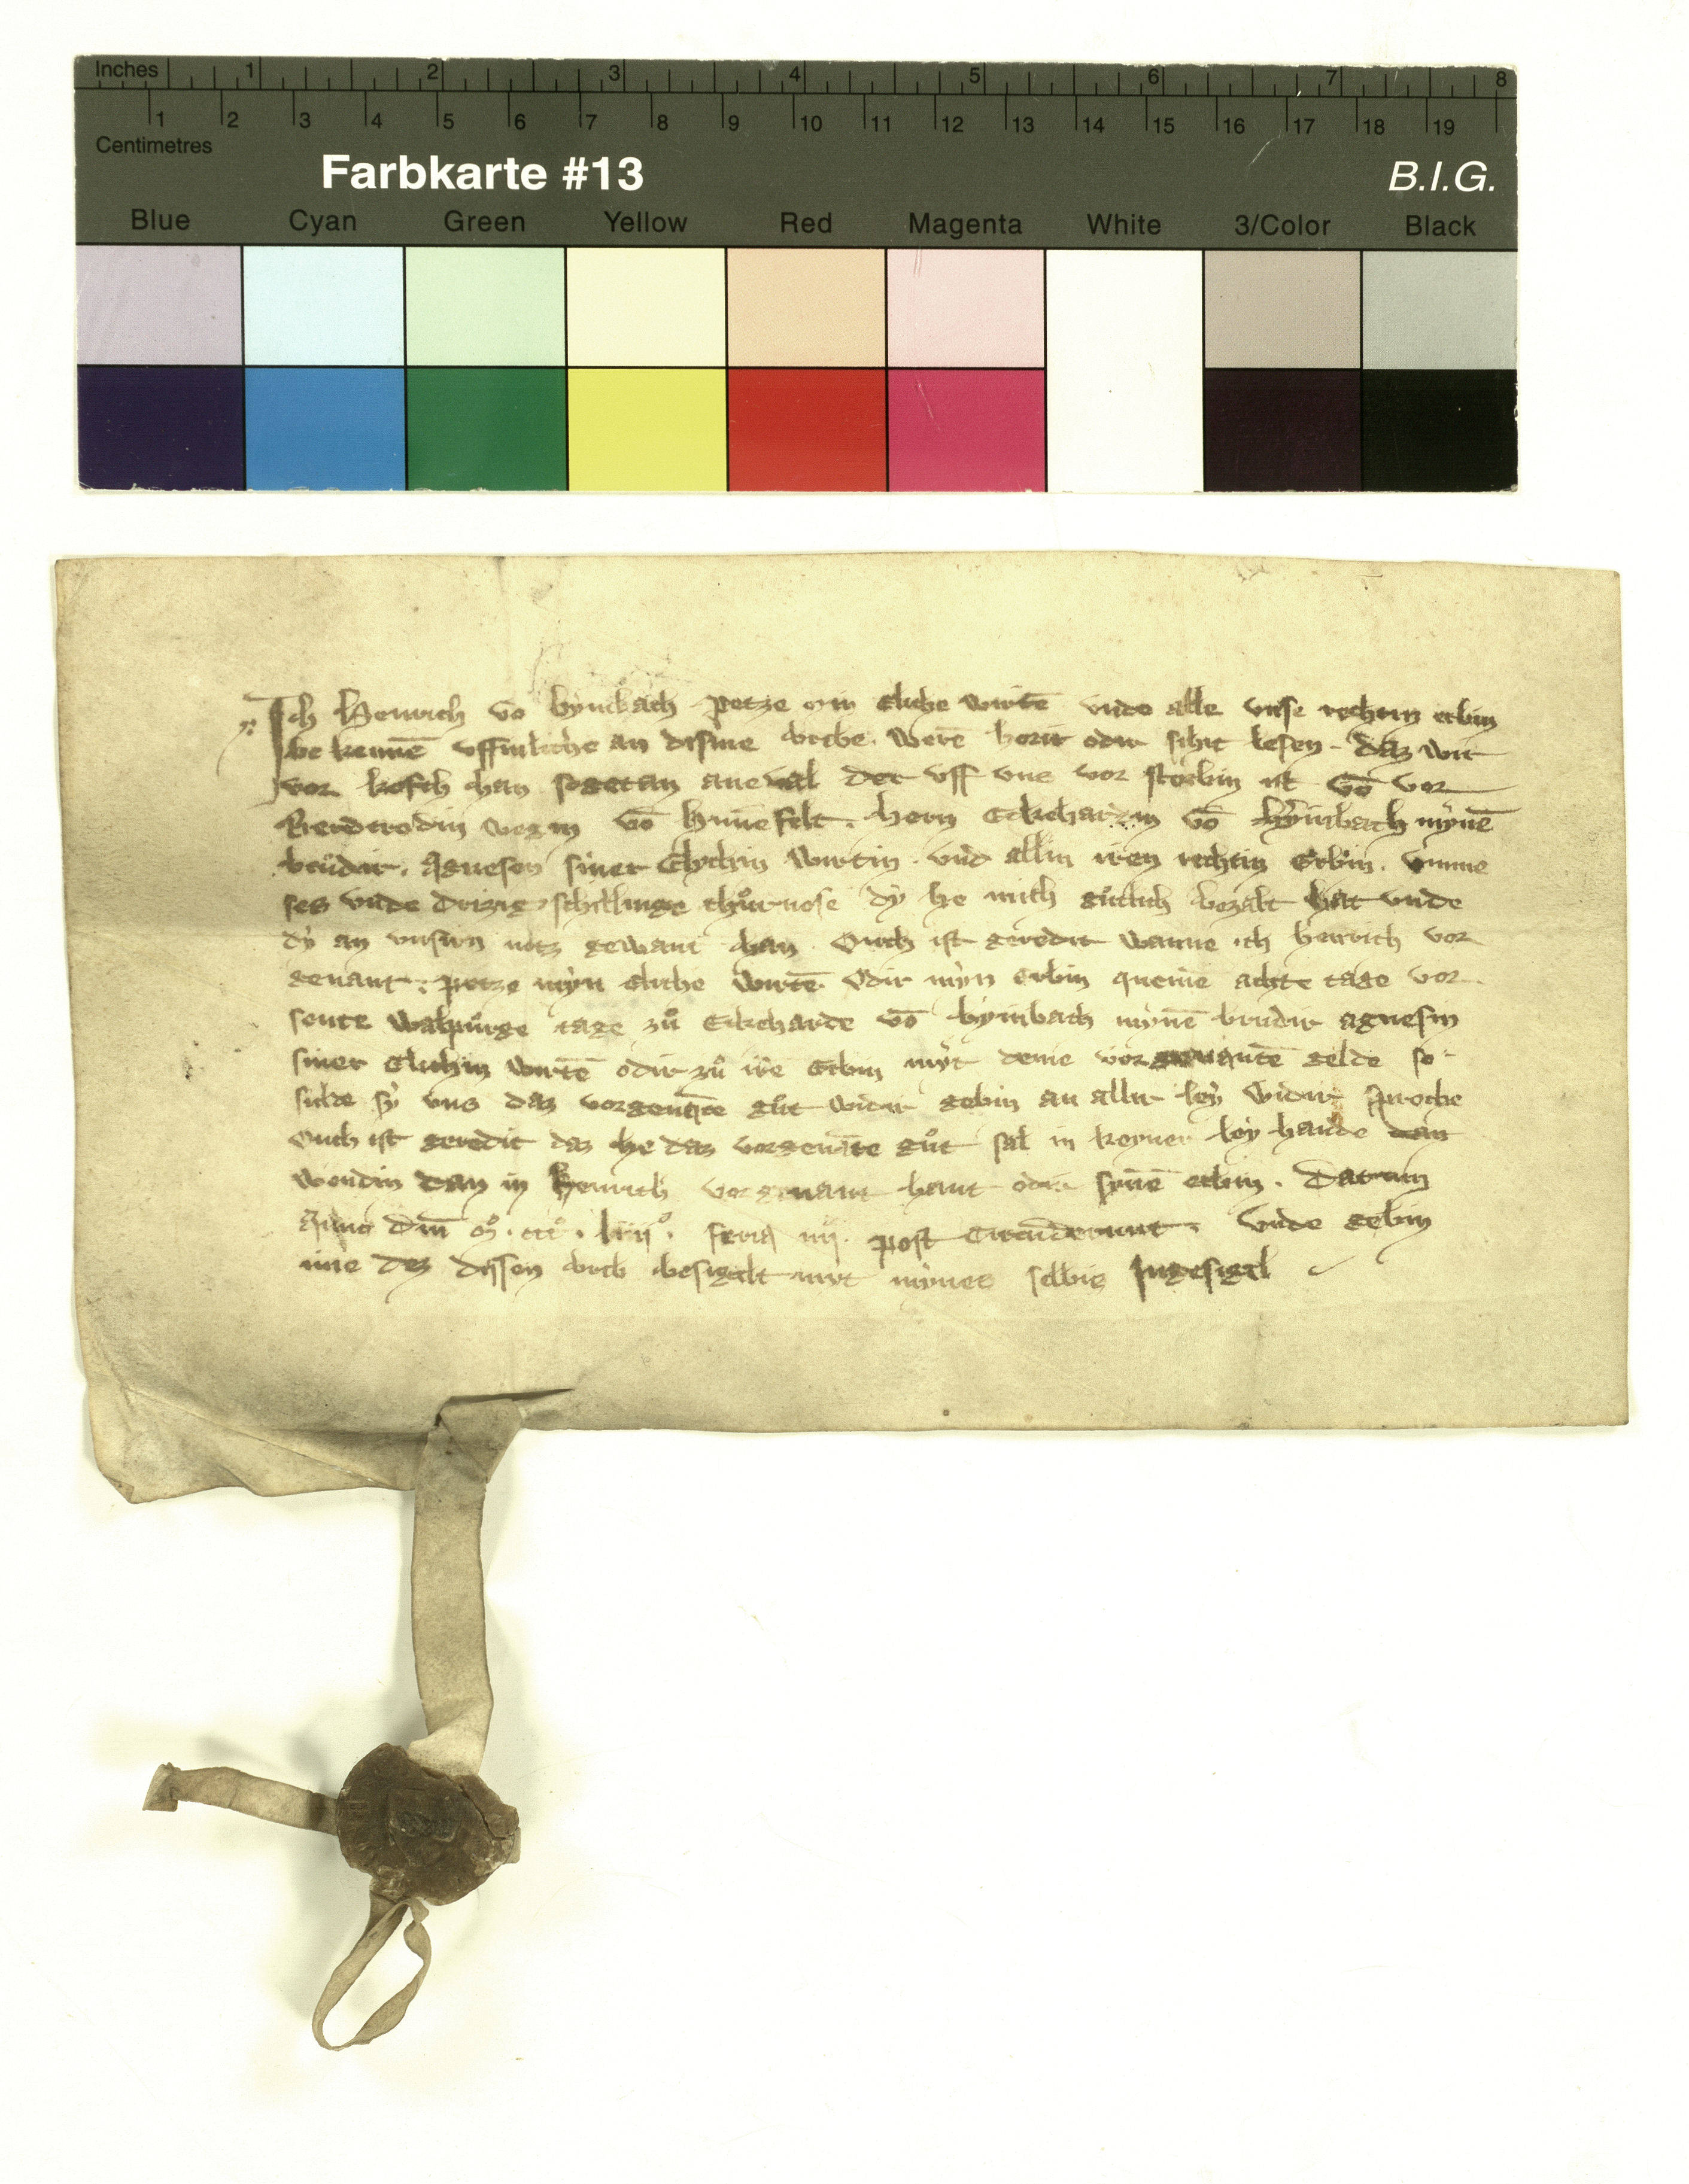 Inches 1 2 3 4 5 6 7 8
1 2 3 4 5 6 7 8 9 10 11 12 13 14 15 16 17 18 19
Centimetres
Farbkarte #13 B.I.G.
Blue Cyan Green Yellow Red Magenta White 3/Color Black
Ich Henrich vō bymbach petze min eliche wirtē vnde alle vnse rechtin erbin
be kennē vffinliche an disme brebe. werē horit odir sihit lesen. daz wir
vor koft han sogetan aneval der vff vns vor storbin ist vō vor
wegin vō hunefelt. hern Eckehardin vō bymbach mynē
brudir. Agnesen siner Elychin wirtin. vnd allin iren rechtin Erbin. vmme
ses vnde drizig schillinge thůrnose dy he mich gůtlich bezalt hat vnde
dy an vnsirn notz gewant han. Ouch ist geredit wanne ich henrich vor
genant. petze myn eliche wirtē. Odir myn erbin queme achte tage vor
sente walpůrge tage zů Eckeharde vō bymbach mynē brudir agnesin
siner Elichin wirtē odir zů ire Erbin myt deme vorgenantē gelde so
sulde sy vns daz vorgenāte gůt widir gebin an allir ley widir sproche
Ouch ist geredit daz he daz vorgenāte gůt sal in keyner ley hande dan
wendin dan in henrich vorgenant hant odir synē erbin. Datum
Anno dm̄ mº. cccº. lxiiº. feria iiij. post Circūdederunt. vnde gebin
ime dez disen brib besigelt myt mynes selbis Ingesigel